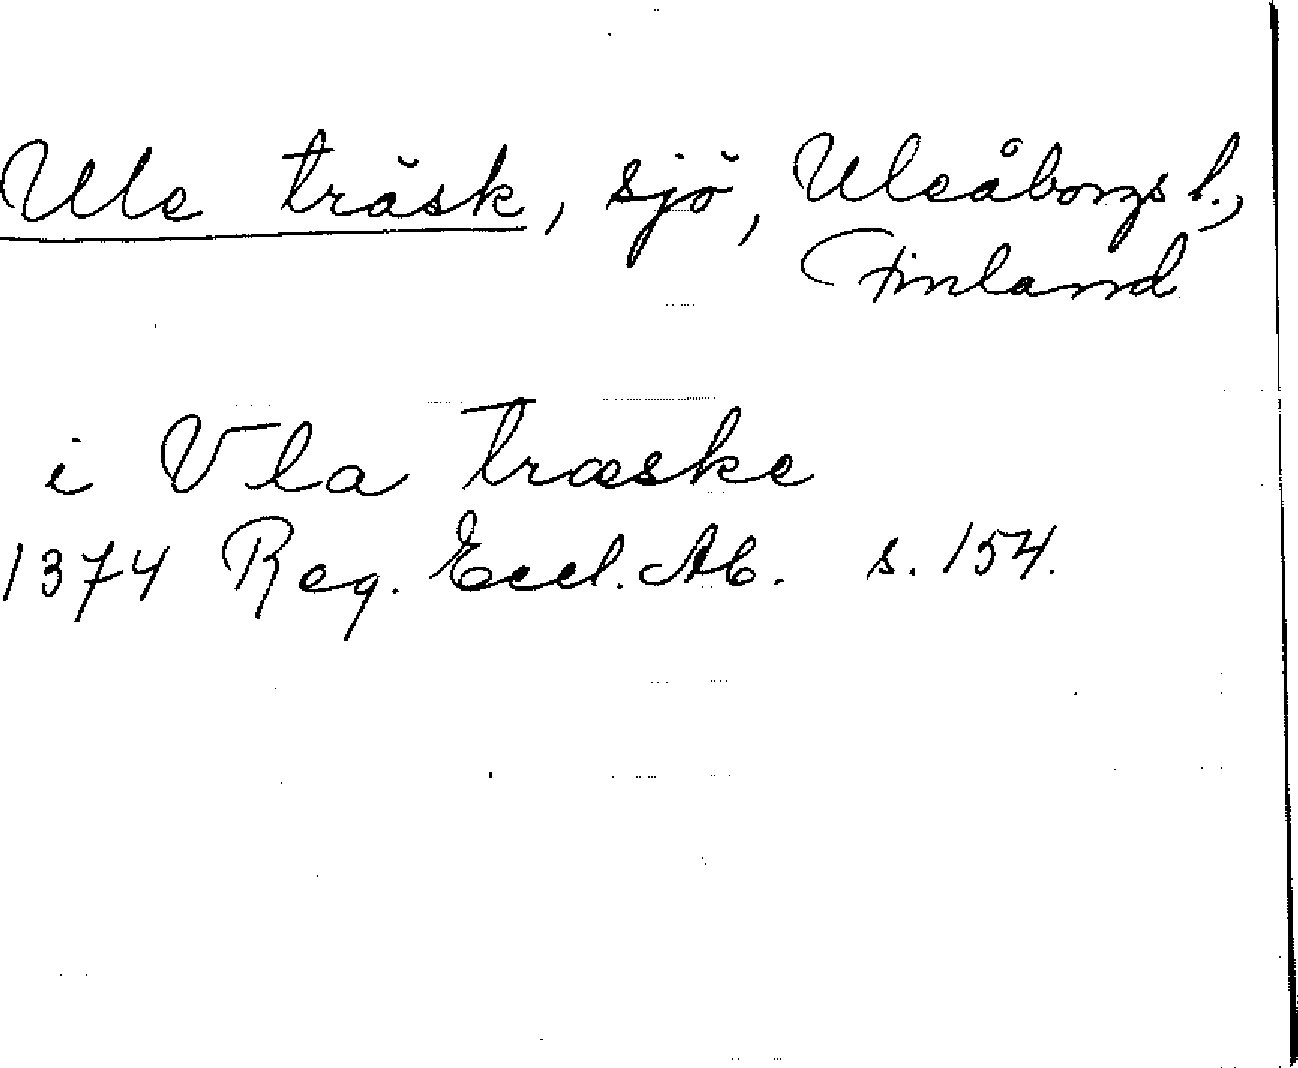 Ule träsk, sjö, Uleåborgs l.,
Finland
i Vla Træske
1374 Reg. Eccl. Ab. s. 154.